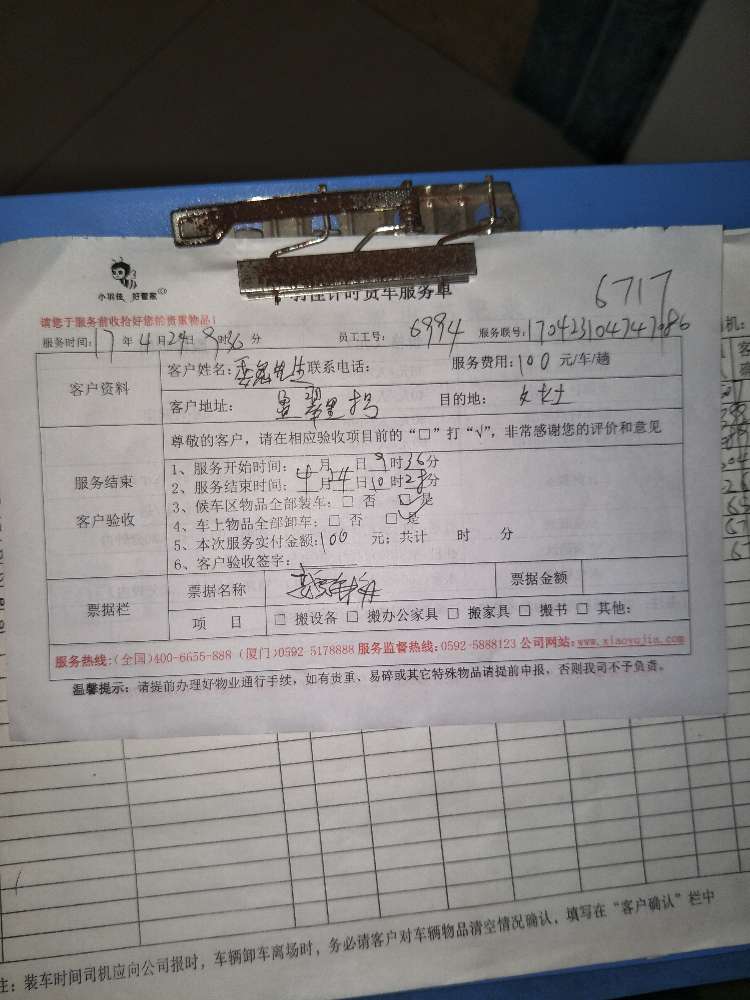 小羽佳 好管家
时计时货车服务单
6717
请您于服务前收拾好您的贵重物品!
服务时间: 17 年 4 月 24 日 9 时 36 分 员工工号: 6994 服务联号: 170423104747086
客户资料
客户姓名: 先生 联系电话: 服务费用: 100 元/车/趟
客户地址: 目的地:
尊敬的客户,请在相应验收项目前的“□”打“√”,非常感谢您的评价和意见
服务结束
客户验收
1、服务开始时间: 4 月 24 日 9 时 36 分
2、服务结束时间: 4 月 24 日 10 时 28 分
3、候车区物品全部装车: □ 否 ☑ 是
4、车上物品全部卸车: □ 否 ☑ 是
5、本次服务实付金额: 100 元; 共计 时 分
6、客户验收签字:
票据栏
票据名称 票据金额
项 目 □ 搬设备 □ 搬办公家具 □ 搬家具 □ 搬书 □ 其他:
服务热线:(全国)400-6655-888 (厦门)0592-5178888 服务监督热线: 0592-5888123 公司网站: www.xiaoyujia.com
温馨提示: 请提前办理好物业通行手续, 如有贵重、易碎或其它特殊物品请提前申报, 否则我司不予负责。
注: 装车时间司机应向公司报时, 车辆卸车离场时, 务必请客户对车辆物品清空情况确认, 填写在“客户确认”栏中